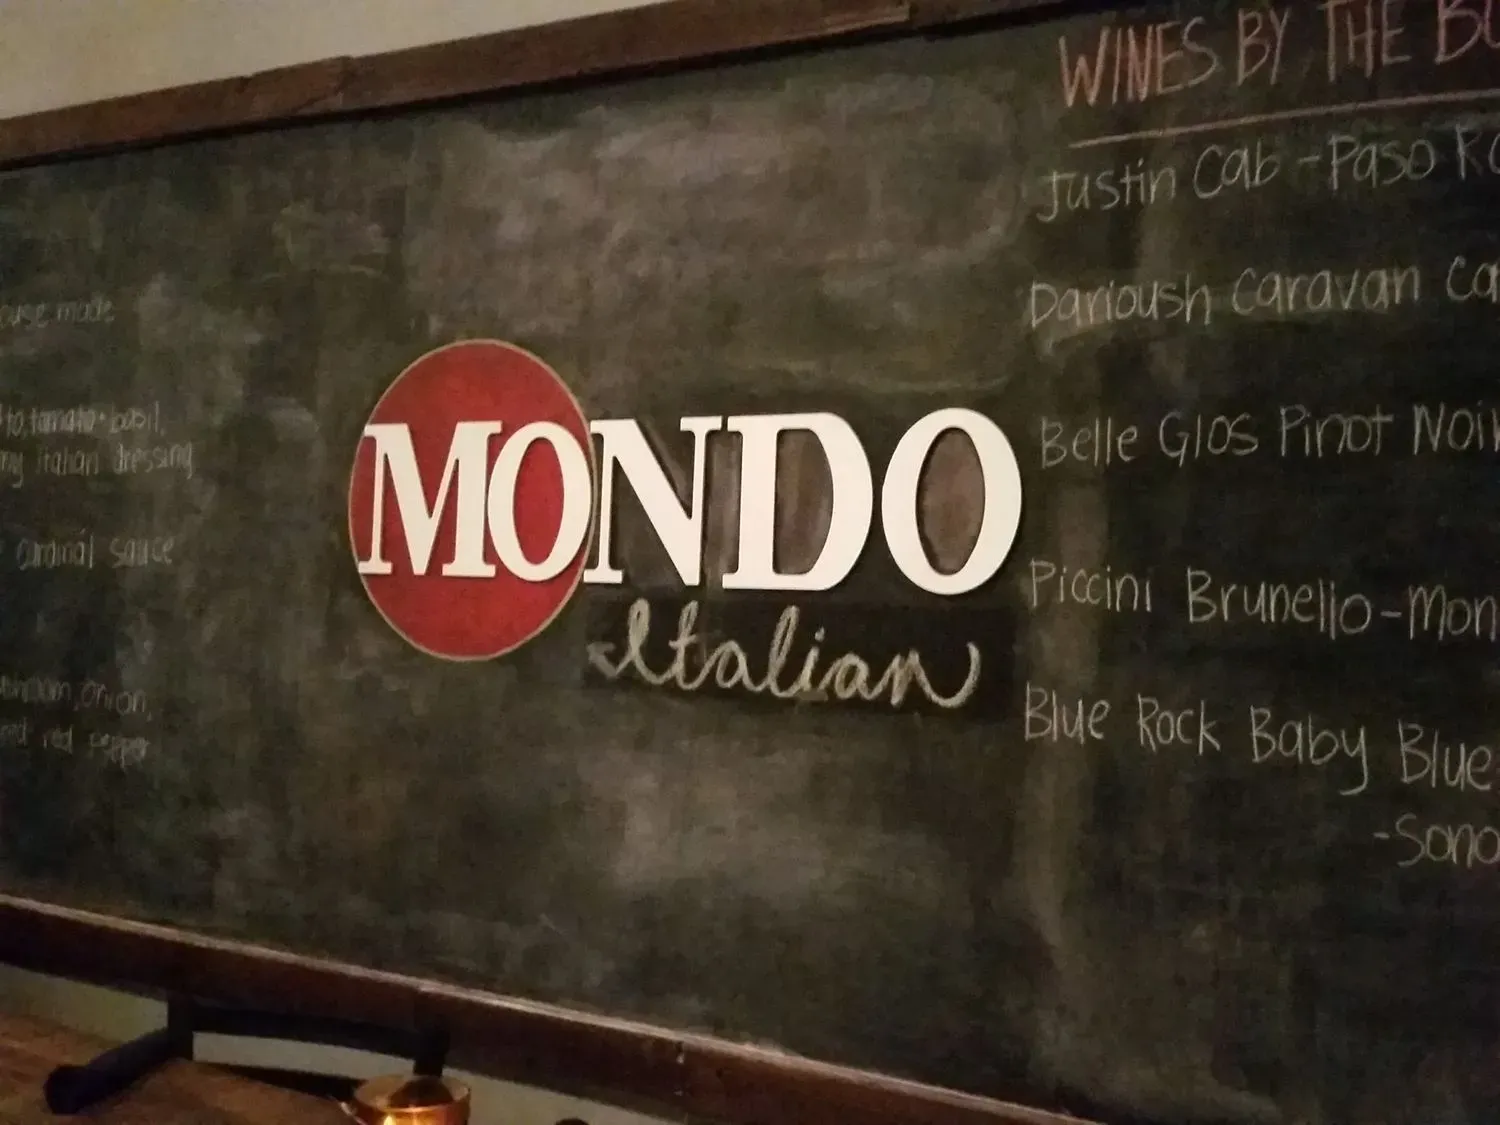 made
to, tomato + basil,
my Italian dressing
cardinal sauce
onion,
red pepper
MONDO
Italian
WINES BY THE
Justin Cab - Paso
Darioush Caravan
Belle Glos Pinot Noir
Piccini Brunello - Mon
Blue Rock Baby Blue
- Sono